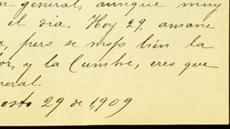 n general, aunque muy
el dia. Hoy 29 amane
, pero se mojó bien la
or, y la Cumbre, creo que
neral.
osto 29 de 1909